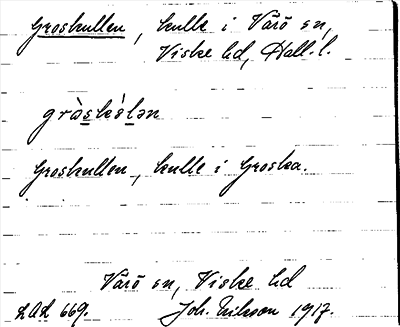 Groskullen, kulle i Värö sn,
Viske hd, Hall. l.
gròskú̀lən
Groskullen, kulle i Groska.
Värö sn, Viske hd
LAL 669. Joh. Erikson 1917.